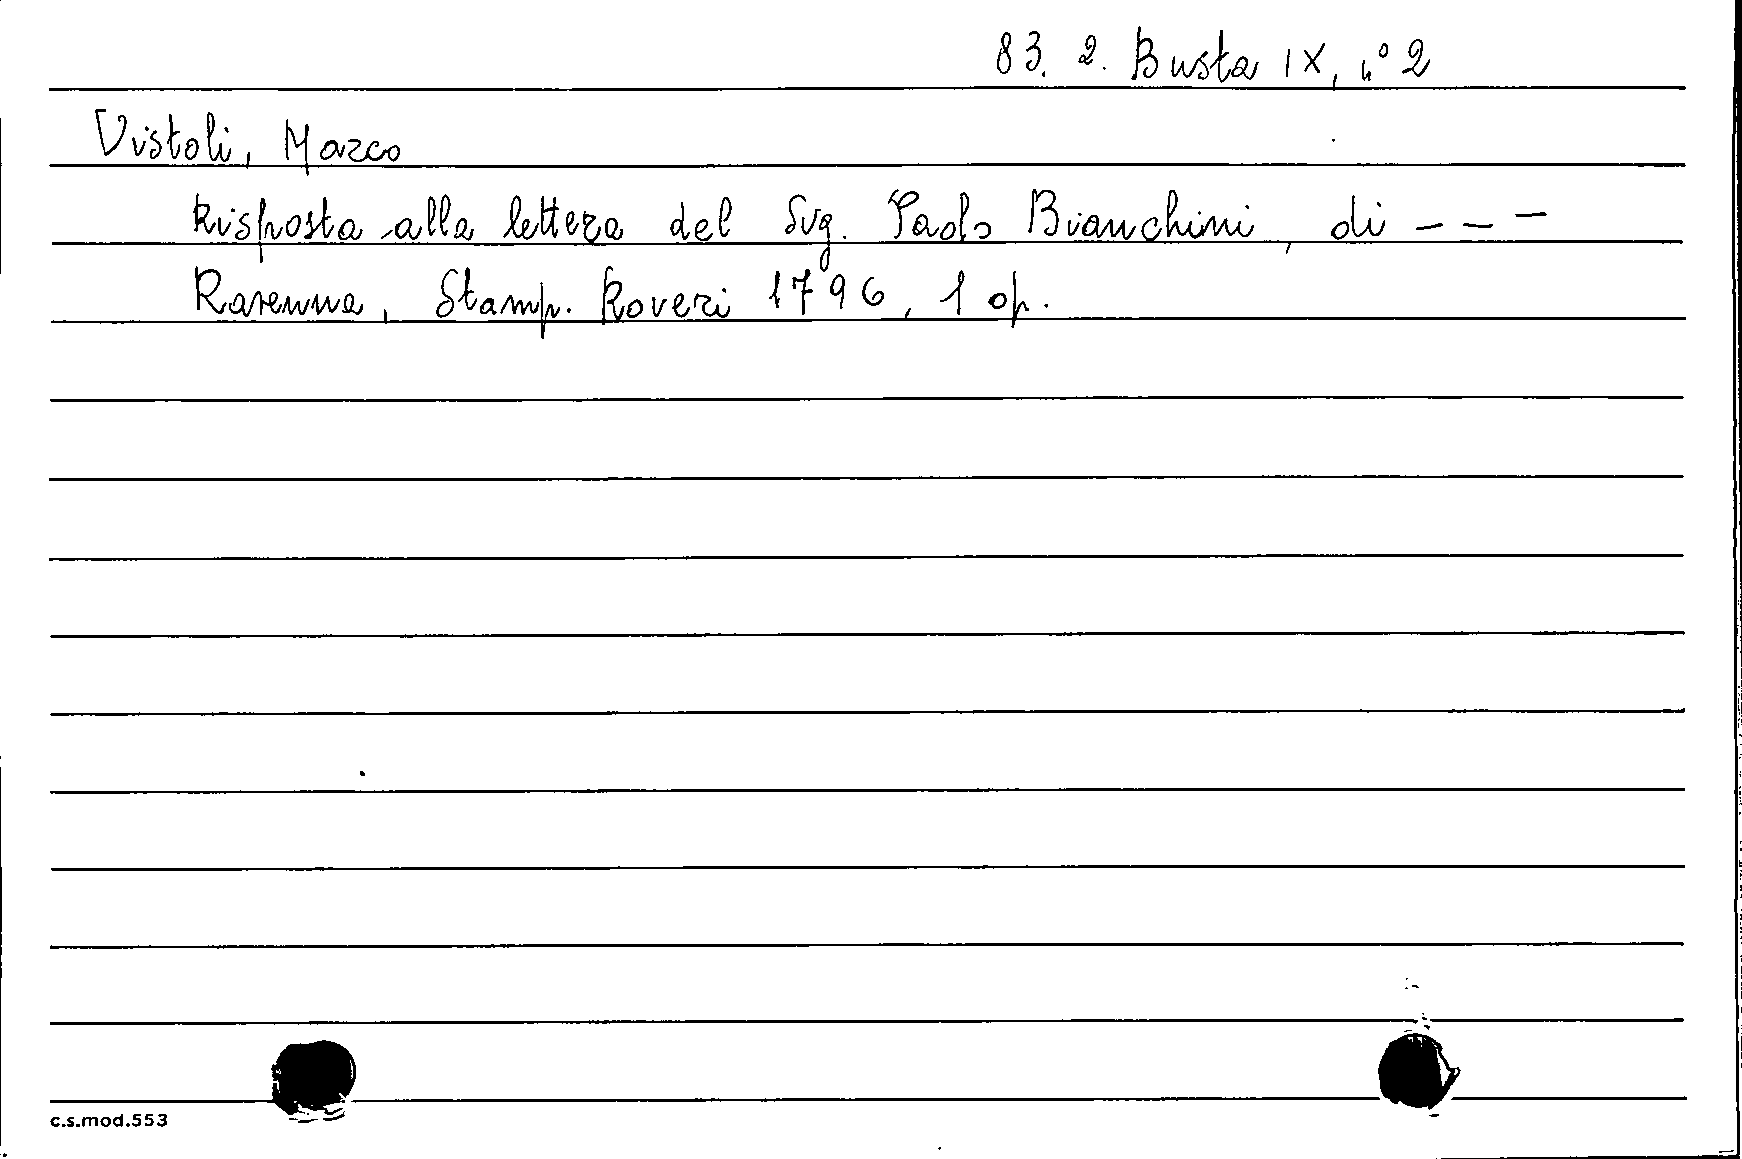 83. 2. Busta IX, n° 2
Vistoli, Marco
Risposta alla lettera del Sig. Paolo Bianchini, di - - -
Ravenna, Stamp. Roveri 1796, 1 op.
c.s.mod.553